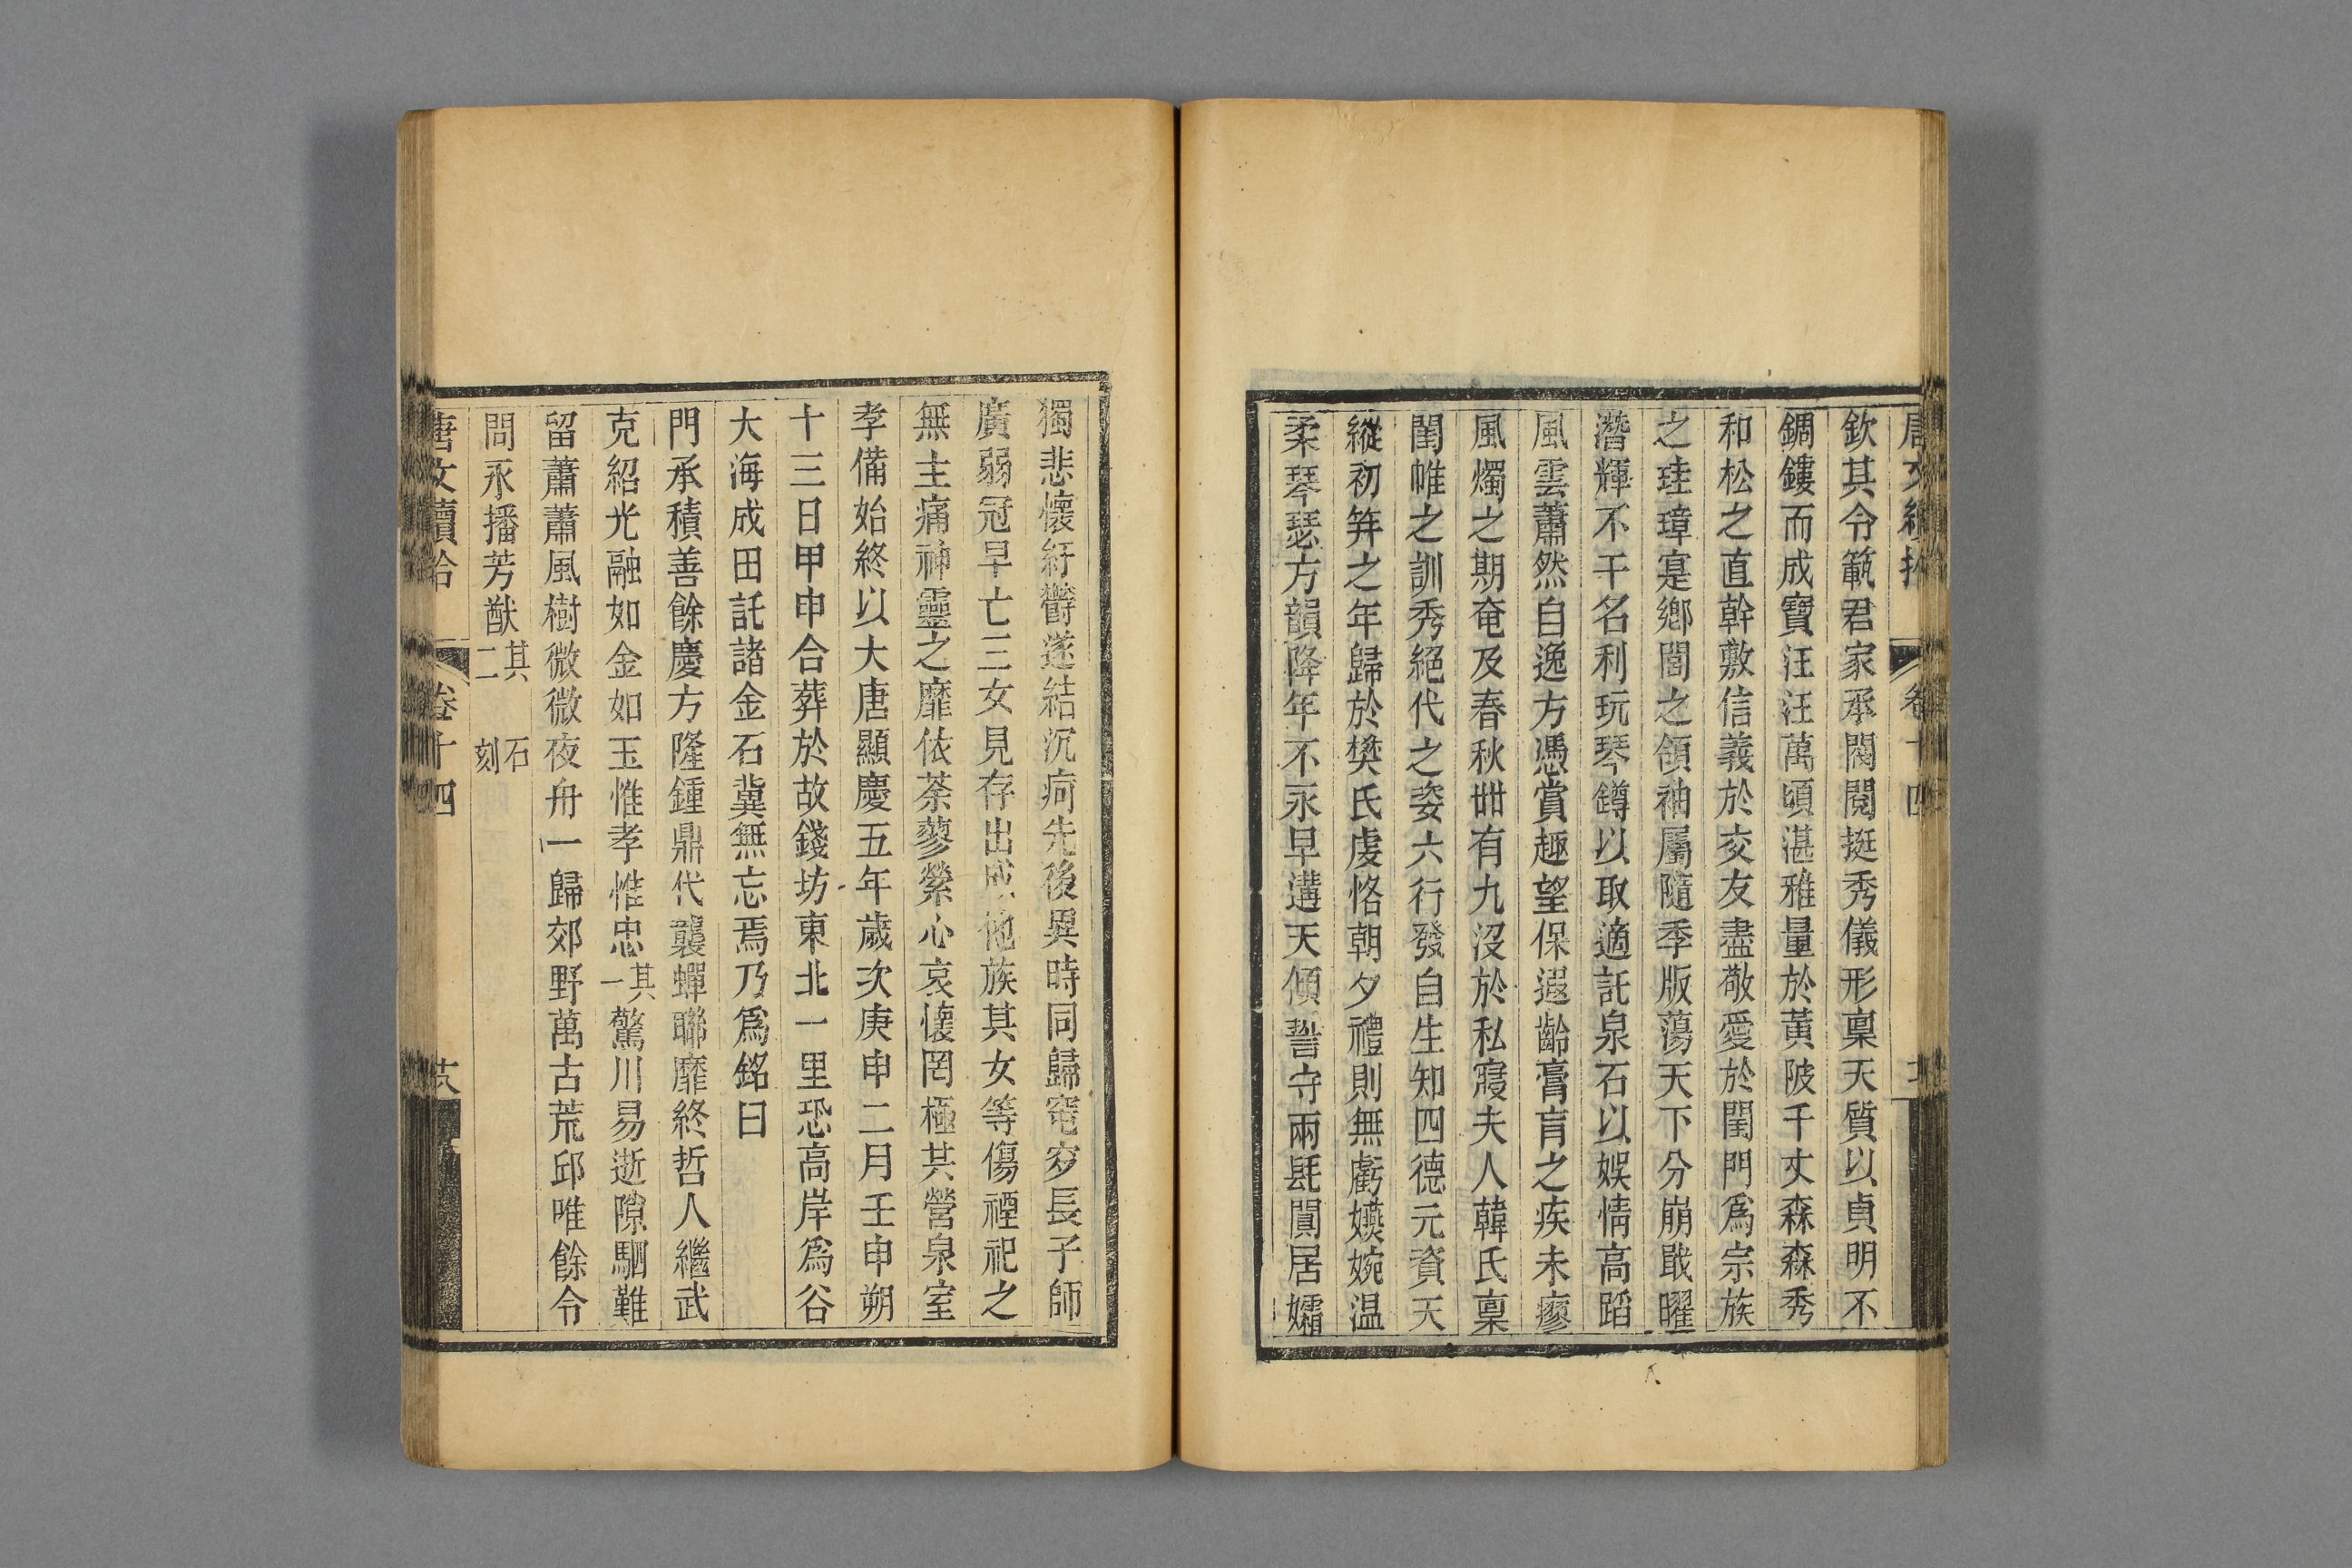 欽其令範君家承閥閱挺秀儀形稟天質以貞明不
鐫鏤而成寶汪汪萬頃湛雅量於黃陂千丈森森秀
和松之直幹敷信義於交友盡敬愛於閨門爲宗族
之珪璋寔鄉閭之領袖屬隨季版蕩天下分崩戢曜
潛輝不干名利玩琴鐏以取適託泉石以娛情高蹈
風雲蕭然自逸方憑賞趣望保遐齡膏肓之疾未瘳
風燭之期奄及春秋卌有九沒於私寢夫人韓氏稟
閨帷之訓秀絕代之姿六行發自生知四德元資天
縱初笄之年歸於樊氏虔恪朝夕禮則無虧嬿婉温
柔琴瑟方韻降年不永早遘天傾誓守兩髦闃居孀
獨悲懷紆鬱遂結沉痾先後異時同歸窀穸長子師
廣弱冠早亡三女見存出成他族其女等傷禋祀之
無主痛神靈之靡依荼蓼縈心哀懷罔極其營泉室
孝備始終以大唐顯慶五年歲次庚申二月壬申朔
十三日甲申合葬於故錢坊東北一里恐高岸爲谷
大海成田託諸金石冀無忘焉乃爲銘曰
門承積善餘慶方隆鍾鼎代襲蟬聯靡終哲人繼武
克紹光融如金如玉惟孝惟忠其一驚川易逝隙駟難
留蕭蕭風樹微微夜舟一歸郊野萬古荒邱唯餘令
問永播芳猷其二 石刻
唐文續拾 卷十四